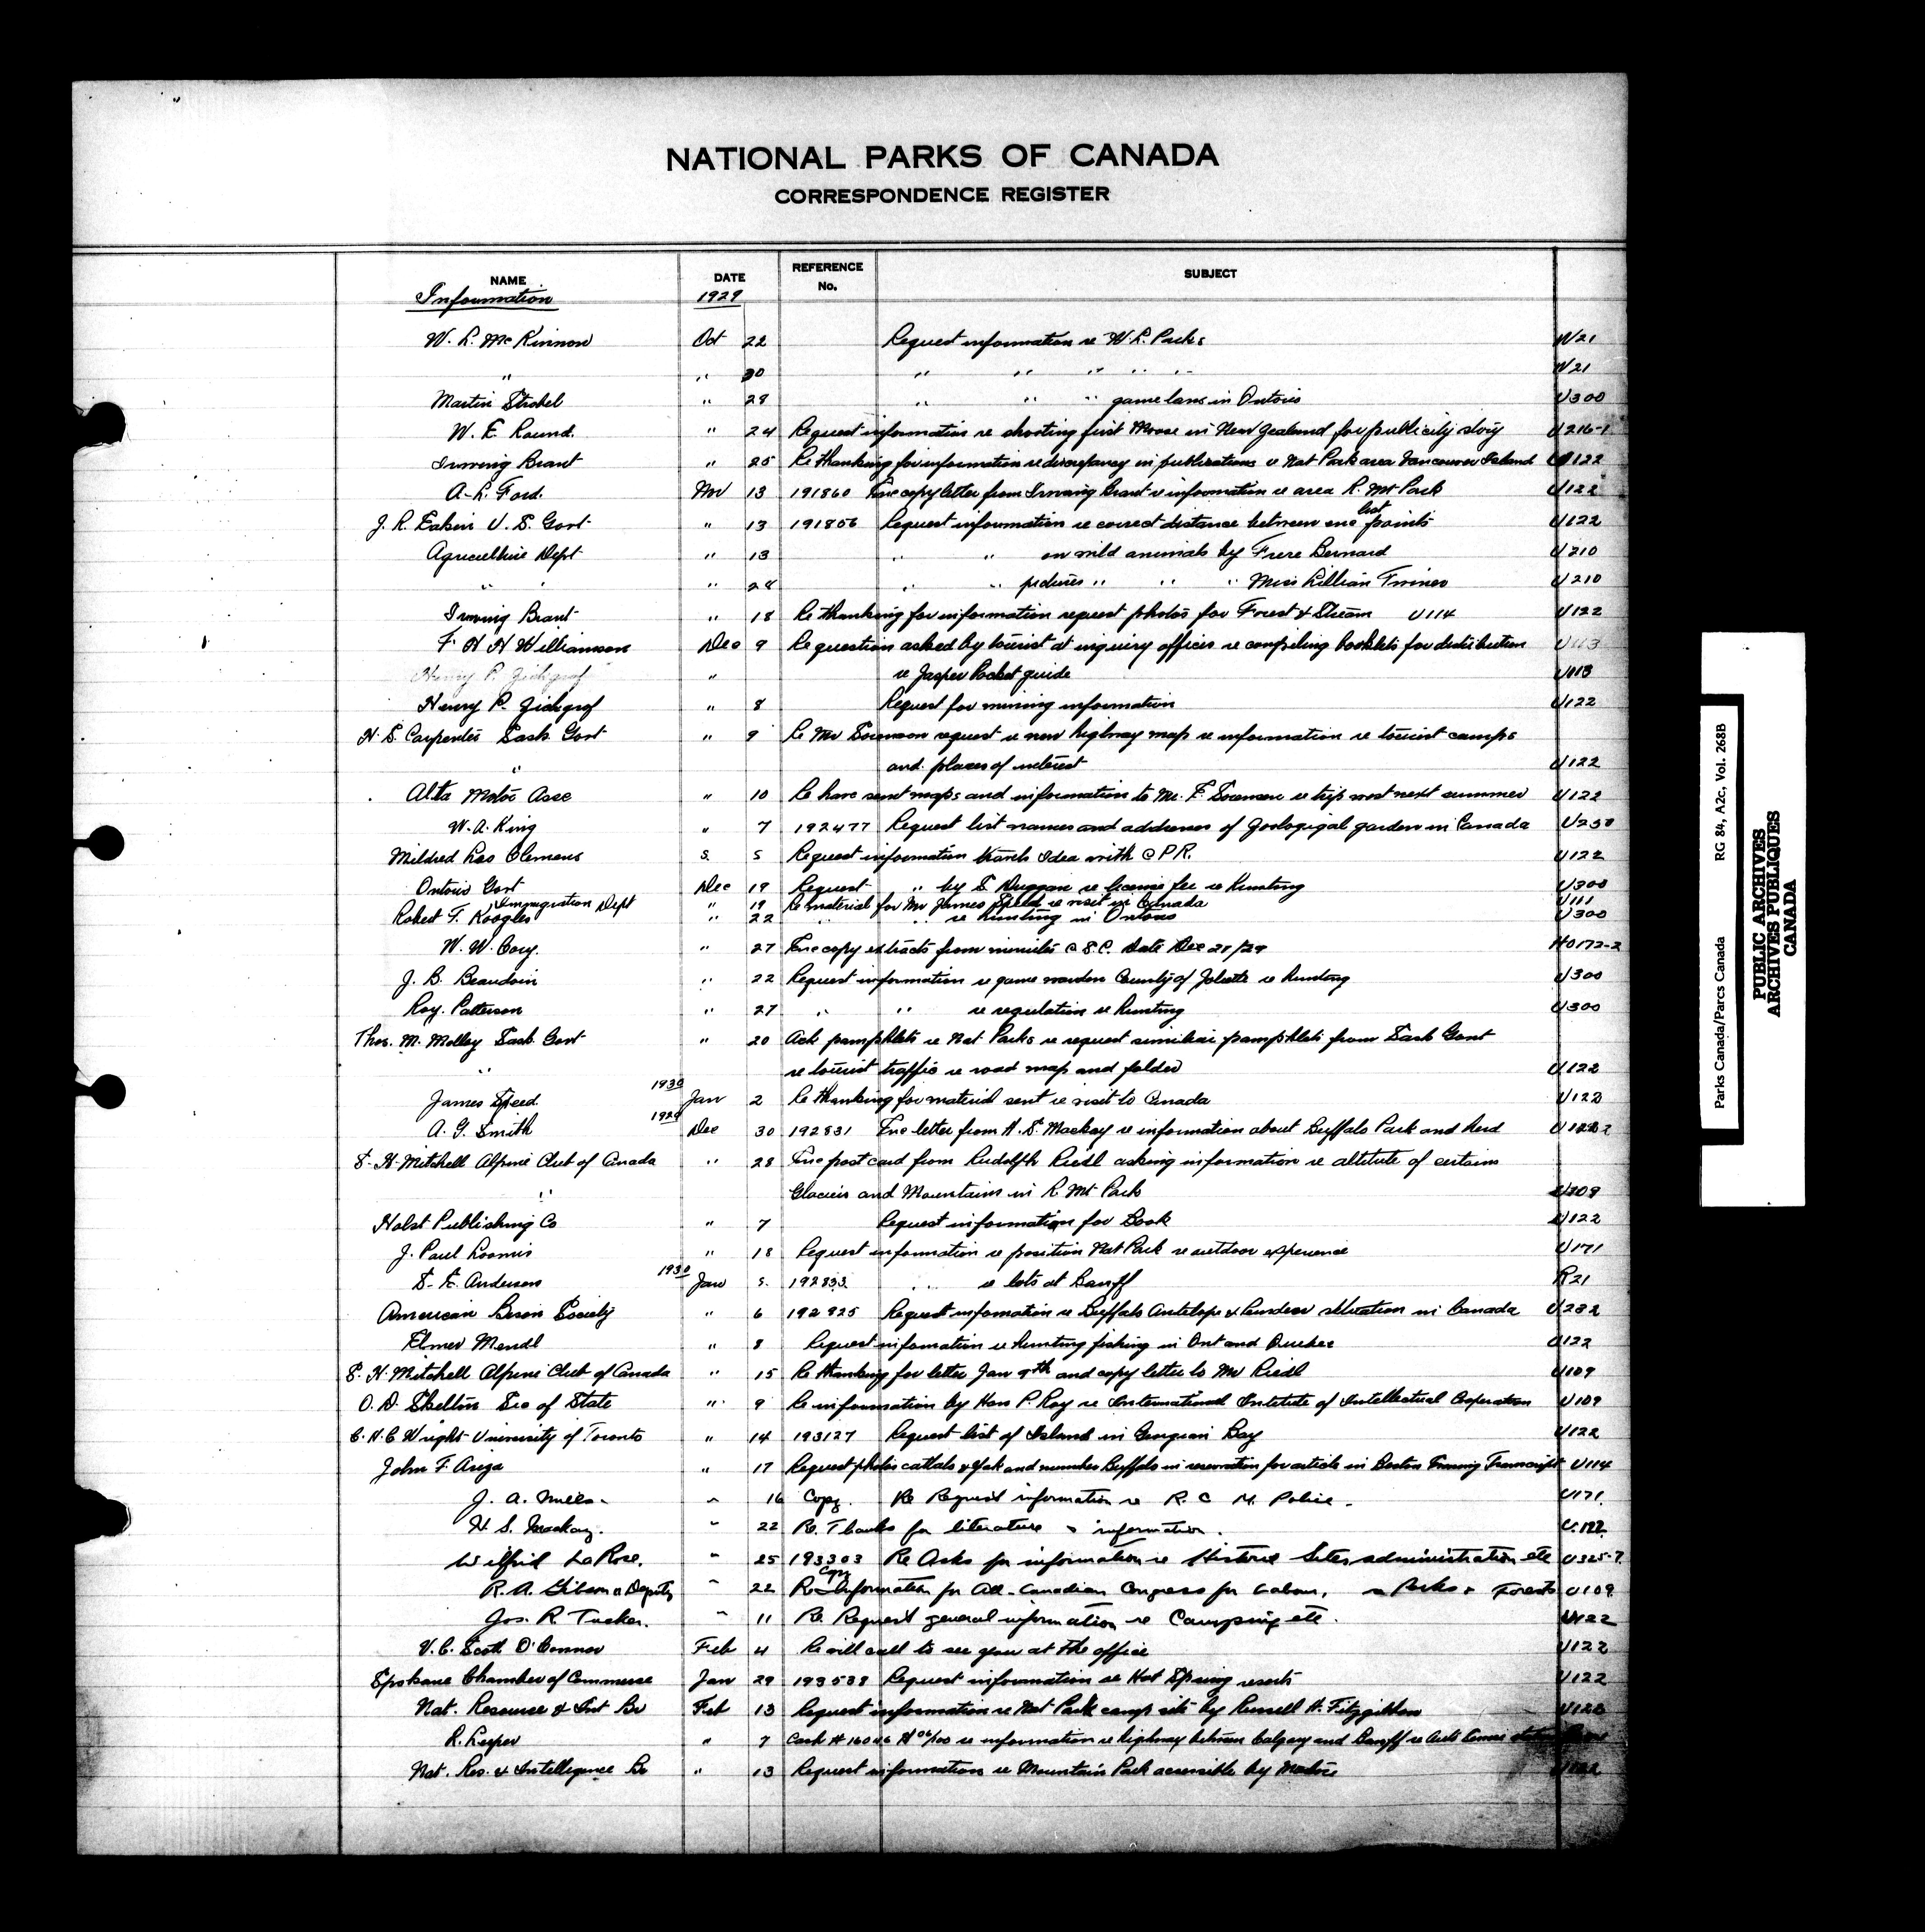 NATIONAL PARKS OF CANADA
CORRESPONDENCE REGISTER
NAME DATE REFERENCE No. SUBJECT
Information 1929
W. L. McKinnon Oct 22 Request information re W. L. Parks W21
" " 30 " " " " " W21
Martin Strobel " 28 " " " game laws in Ontario U300
W. E. Round. " 24 Request information re shooting first Moose in New Zealand for publicity story U216-1
Irwving Brant " 25 Re thanking for information re discrepancy in publications re Nat Park area Vancouver Island U122
A. L. Ford. Nov 13 191860 Enc copy letter from Irwving Brant re information re area R. Mt Park U122
J. R. Eakin U. S. Govt " 13 191856 Request information re correct distance between enc list points U122
Agriculture Dept " 13 " " on wild animals by Frere Bernard U210
" " " 28 " " pictures " " " Miss Lillian U210
Irwving Brant " 18 Re thanking for information request photos for Forest & Stream U114 U122
F. H. H Williamson Dec 9 Re question asked by tourist at inquiry offices re compiling booklets for distribution U113
Henry P. Zichgrof " re Jasper Pocket guide U113
Henry P. Zichgrof " 8 Request for mining information U122
H. S. Carpenter Sask. Govt " 9 Re Mr Sorenson request re new highway map re information re tourist camps
" and places of interest U122
Alta Motor Assc " 10 Re have sent maps and information to Mr. F. Sorenson re trip west next summer U122
W. A. King " 7 192477 Request list names and addresses of Zoologigal garden in Canada U250
Mildred Leo Clemens S. 5 Request information travels Idea with C P R. U122
Ontario Govt Dec 19 Request " by S. Duggan re license fee re Hunting U300
Immigration Dept " 19 Re material for Mr James Speed re visit in Canada U111
Robert F. Koogler " 22 " " re hunting in Ontario U300
W. W. Cory. " 27 Enc copy extracts from minutes C S. C. Date Dec 21/29 H0172-2
J. B. Beaudoin " 22 Request information re game warden County of Joliette re Hunting U300
Roy. Patterson " 27 " " re regulation re Hunting U300
Thos. M. Molloy Sask. Govt " 20 Ack pamphlets re Nat Parks re request similiar pamphlets from Sask Govt
" re tourist traffic re road map and folder U122
James Speed. 1930 Jan 2 Re thanking for material sent re visit to Canada U122
A. G. Smith 1929 Dec 30 192831 Enc letter from H. S. Mackay re information about Buffalo Park and herd
S. H. Mitchell Alpine Club of Canada " 28 Enc post card from Rudolph Riedl asking information re altitute of certain
" Glaciers and Mountains in R. Mt Park U309
Holst Publishing Co " 7 Request information for Book U122
J. Paul Loomis " 18 Request information re position Nat Park re outdoor experience U171
S. E. Anderson 1930 Jan 5. 192833 " " re lots at Banff R21
American Bison Society " 6 192925 Request information re Buffalo Antelope & Reindeer situation in Canada U232
Elmer Mendl " 8 Request information re Hunting fishing in Ont and Quebec U122
S. H. Mitchell Alpine Club of Canada " 15 Re thanking for letter Jan 9th and copy letter to Mr Riedl U109
O. D. Skelton Sec of State " 9 Re information by Hon P. Roy re International Institute of Intellectual Cooperation U109
C. H. C Wright University of Toronto " 14 193127 Request list of Island in Georgian Bay U122
John F. Ariza " 17 Request photos cattalo & Yak and number Buffalo in reservation for article in Boston Evening Transcript U114
J. A. Mills. " 16 Copy. Re Request information re R. C M. Police. U171.
H. S. Mackay. " 22 Re. Thanks for literature & information. U.122.
Wilfrid LaRose. " 25 193303 Re Asks for information re Historic Sites, administration etc U325-7
R. A. Gibson a Deputy " 22 Copy Re Information for All-Canadian Congress for Labour, re Parks & Forests U109
Jos. R. Tucker. " 11 Re Request general information re Camping etc. U122
V. C. Scott O'Connor Feb 4 Re will call to see you at the office U122
Spokane Chamber of Commerse Jan 29 193538 Request information re Hot Spring resorts U122
Nat. Resource & Int Br Feb 13 Request information re Nat Park camp site by Russell H. Fitzgibbon U122
R. Leeper " 7 Cash # 16046 re information re highway between Calgary and Banff re
Nat. Res. & Intelligence Br " 13 Request information re Mountain Park accessible by Motor U122
Parks Canada/Parcs Canada RG 84, A2c, Vol. 268B
PUBLIC ARCHIVES
ARCHIVES PUBLIQUES
CANADA